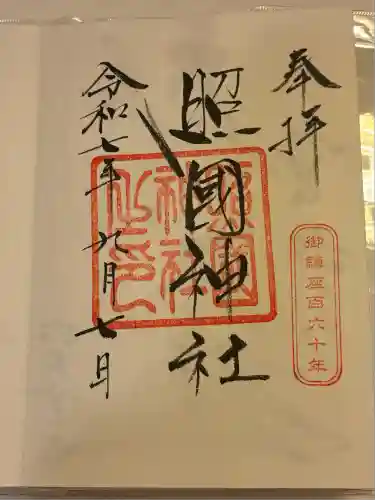 奉拝
照國神社
令和七年九月七日
照國神社之印
御鎮座百六十年